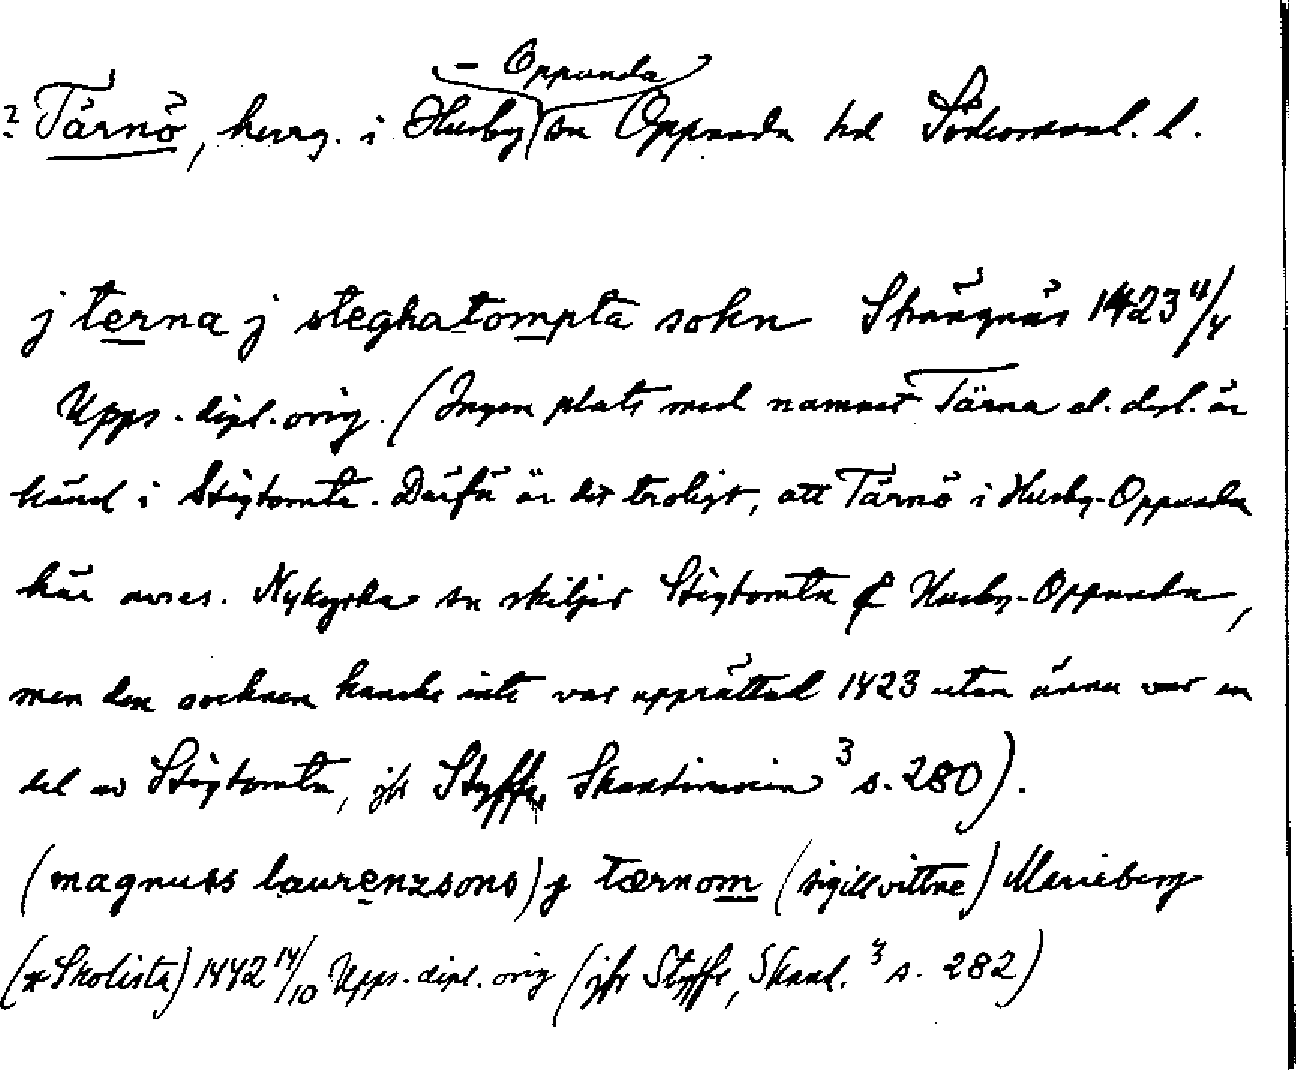 - Oppunda
? Tärnö, herrg. i Husby sn Oppunda hd Södermanl. l.
j terna j steghatompta sokn Strängnäs 1423 11/4
Upps. dipl. orig. (Ingen plats med namnet Tärna el. dyl. är
känd i Stigtomta. Därför är det troligt, att Tärnö i Husby-Oppunda
här avses. Nykyrka sn skiljer Stigtomta f Husby-Oppunda,
men den socknen kanske inte var upprättad 1423 utan ännu var en
del av Stigtomta, jfr Styffe, Skandinavien 3 s. 280).
(magnuss laurenzsons) j tærnom (sigillvittne) Marieberg
(x Skolista) 1442 14/10 Upps. dipl. orig (jfr Styffe, Skand. 3 s. 282)